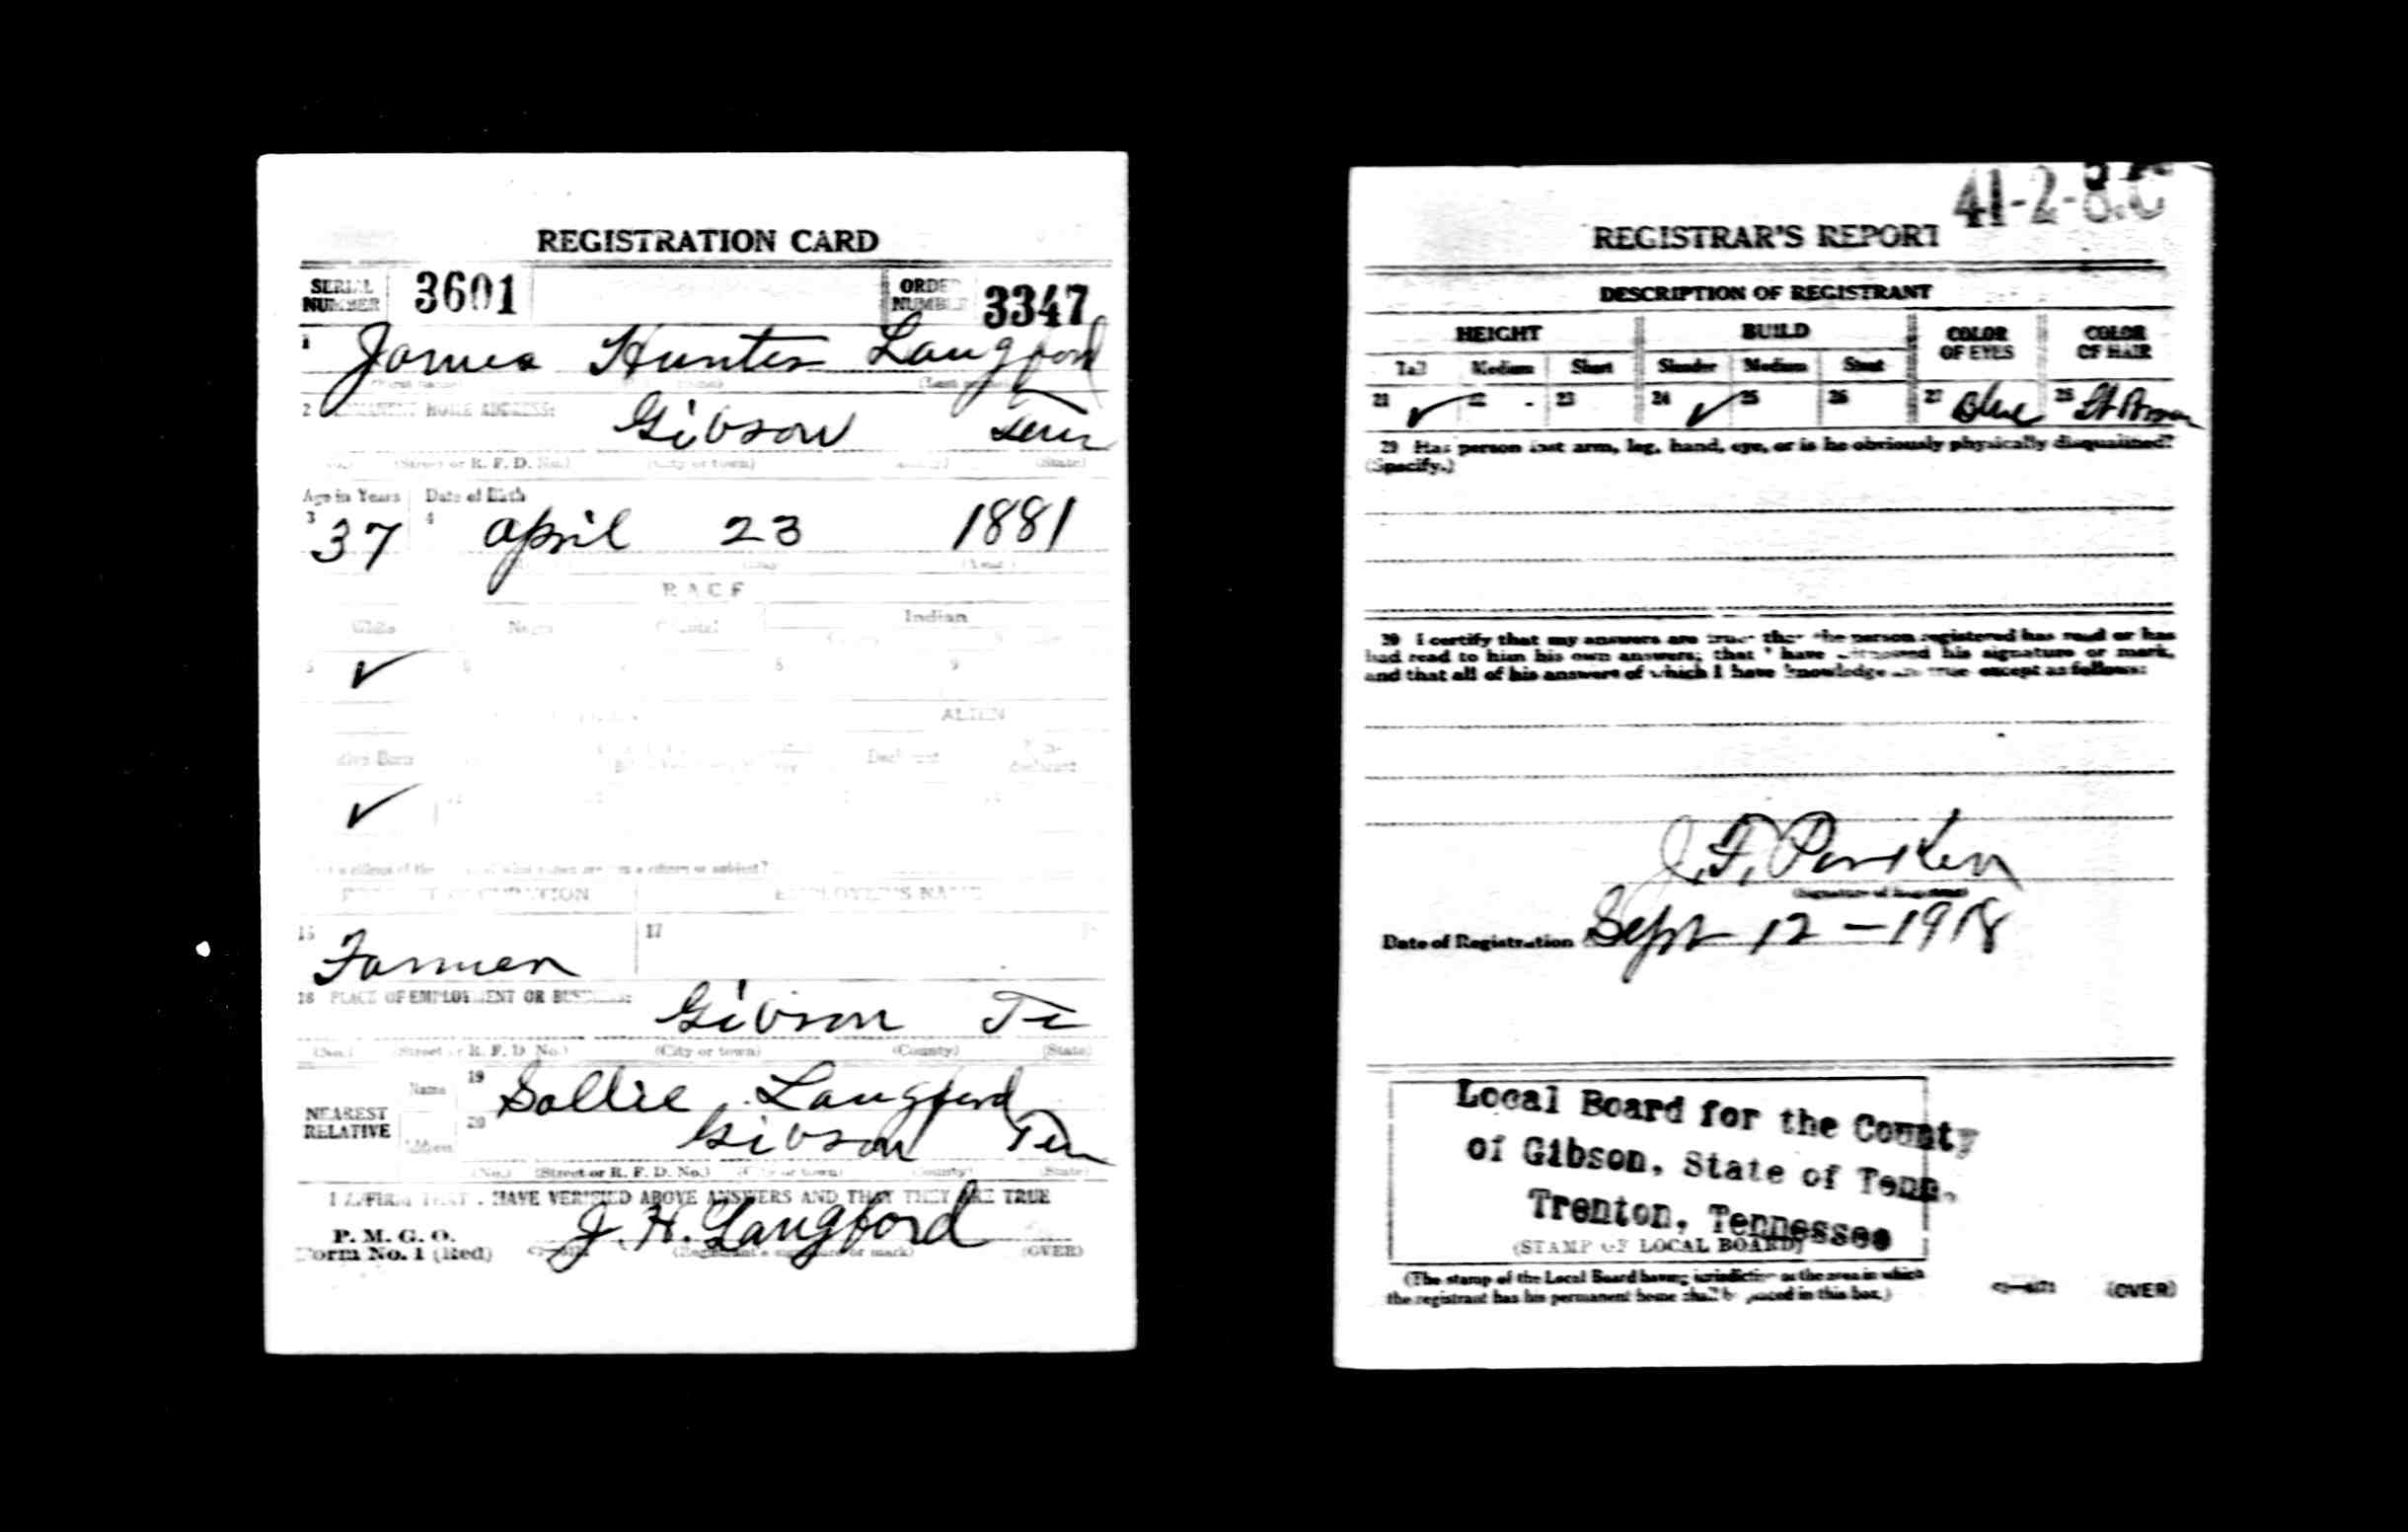 REGISTRATION CARD
SERIAL NUMBER 3601 ORDER NUMBER 3347
1 James Hunter Langford
2 PERMANENT HOME ADDRESS: Gibson Tenn
(Street or R. F. D. No.) (City or town) (State)
Age in Years Date of Birth
3 37 4 April 23 1881
(Day) (Year)
RACE
White Negro Oriental Indian
5 ✓ 6 8 9
ALIEN
Native Born Declarant Non-declarant
✓
OCCUPATION EMPLOYER'S NAME
16 Farmer 17
18 PLACE OF EMPLOYMENT OR BUSINESS: Gibson Te
(No.) (Street or R. F. D. No.) (City or town) (County) (State)
NEAREST RELATIVE
Name 19 Sallie Langford
Address 20 Gibson Ten
(No.) (Street or R. F. D. No.) (City or town) (County) (State)
I AFFIRM THAT I HAVE VERIFIED ABOVE ANSWERS AND THAT THEY ARE TRUE
P. M. G. O.
Form No. 1 (Red) J. H. Langford
(Registrant's signature or mark) (OVER)
41-2-8.C
REGISTRAR'S REPORT
DESCRIPTION OF REGISTRANT
HEIGHT BUILD COLOR OF EYES COLOR OF HAIR
Tall Medium Short Slender Medium Stout
21 ✓ 22 23 24 ✓ 25 26 27 Blue 28 Lt Brown
29 Has person lost arm, leg, hand, eye, or is he obviously physically disqualified?
(Specify.)
30 I certify that my answers are true; that the person registered has read or has
had read to him his own answers; that I have witnessed his signature or mark,
and that all of his answers of which I have knowledge are true except as follows:
J. F. Parker
(Signature of Registrar)
Date of Registration Sept 12 - 1918
Local Board for the County
of Gibson, State of Tenn.
Trenton, Tennessee
(STAMP OF LOCAL BOARD)
(The stamp of the Local Board having jurisdiction of the area in which
the registrant has his permanent home shall be placed in this box.)
(OVER)